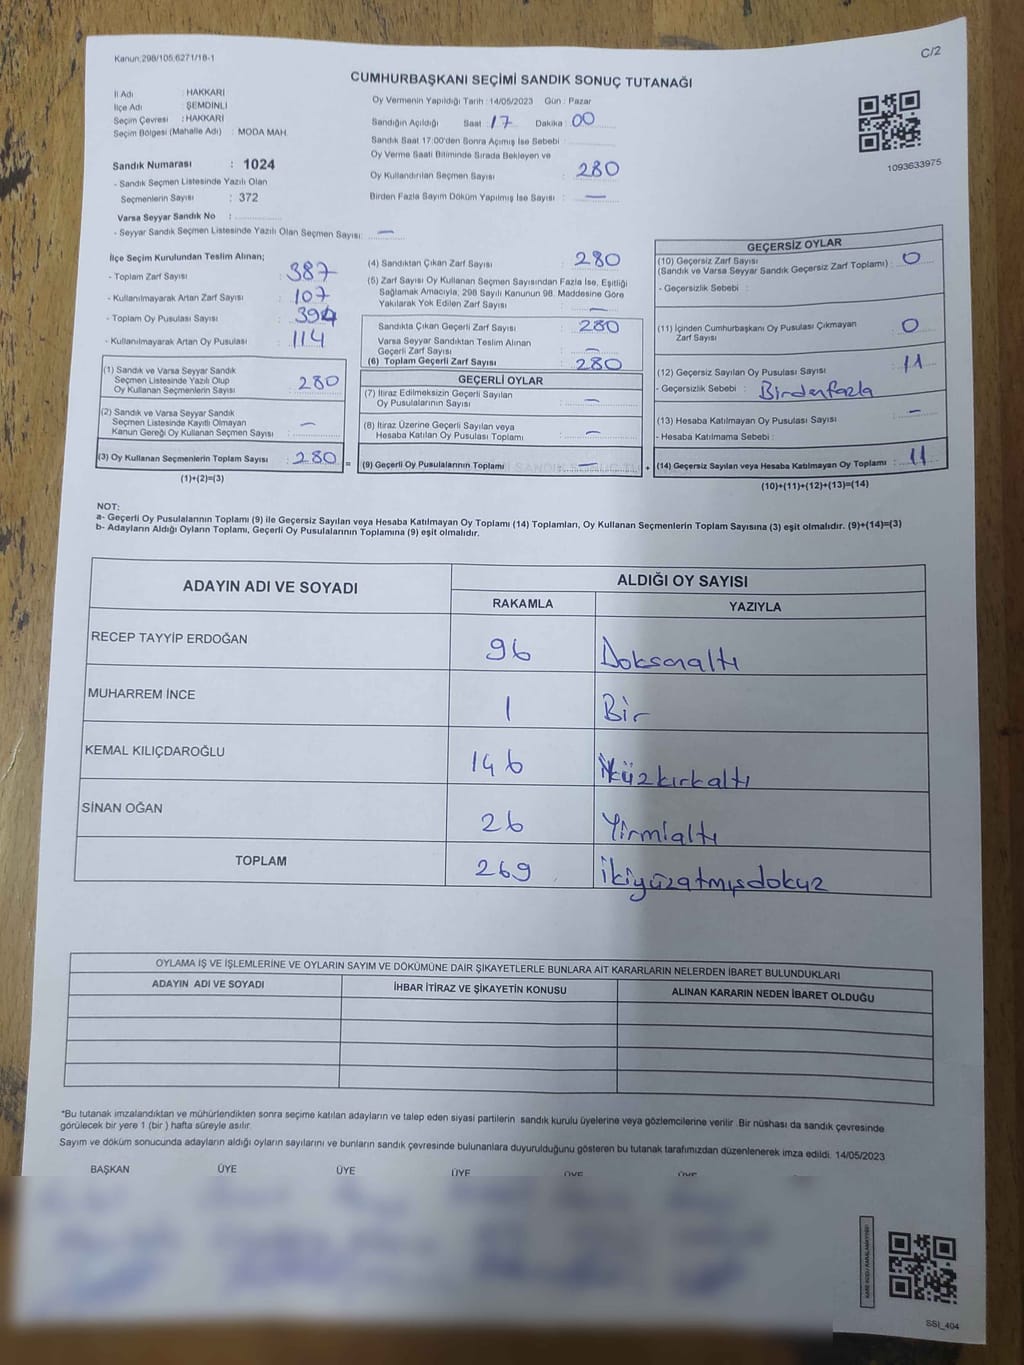 Kanun:298/105;6271/18-1
C/2
CUMHURBAŞKANI SEÇİMİ SANDIK SONUÇ TUTANAĞI
İl Adı : HAKKARİ
İlçe Adı : ŞEMDİNLİ
Seçim Çevresi : HAKKARİ
Seçim Bölgesi (Mahalle Adı) : MODA MAH.
Oy Vermenin Yapıldığı Tarih : 14/05/2023 Gün : Pazar
Sandığın Açıldığı Saat : 17 Dakika : 00
Sandık Saat 17:00'den Sonra Açımış İse Sebebi :
Oy Verme Saati Bitiminde Sırada Bekleyen ve
Oy Kullandırılan Seçmen Sayısı : 280
Birden Fazla Sayım Döküm Yapılmış İse Sayısı : —
1093633975
Sandık Numarası : 1024
- Sandık Seçmen Listesinde Yazılı Olan
Seçmenlerin Sayısı : 372
Varsa Seyyar Sandık No :
- Seyyar Sandık Seçmen Listesinde Yazılı Olan Seçmen Sayısı: —
İlçe Seçim Kurulundan Teslim Alınan;
- Toplam Zarf Sayısı : 387
- Kullanılmayarak Artan Zarf Sayısı : 107
- Toplam Oy Pusulası Sayısı : 394
- Kullanılmayarak Artan Oy Pusulası : 114
(1) Sandık ve Varsa Seyyar Sandık
Seçmen Listesinde Yazılı Olup
Oy Kullanan Seçmenlerin Sayısı : 280
(2) Sandık ve Varsa Seyyar Sandık
Seçmen Listesinde Kayıtlı Olmayan
Kanun Gereği Oy Kullanan Seçmen Sayısı : —
(3) Oy Kullanan Seçmenlerin Toplam Sayısı : 280 =
(1)+(2)=(3)
(4) Sandıktan Çıkan Zarf Sayısı : 280
(5) Zarf Sayısı Oy Kullanan Seçmen Sayısından Fazla İse, Eşitliği
Sağlamak Amacıyla, 298 Sayılı Kanunun 98. Maddesine Göre
Yakılarak Yok Edilen Zarf Sayısı : —
Sandıkta Çıkan Geçerli Zarf Sayısı : 280
Varsa Seyyar Sandıktan Teslim Alınan
Geçerli Zarf Sayısı : —
(6) Toplam Geçerli Zarf Sayısı : 280
GEÇERLİ OYLAR
(7) İtiraz Edilmeksizin Geçerli Sayılan
Oy Pusulalarının Sayısı : —
(8) İtiraz Üzerine Geçerli Sayılan veya
Hesaba Katılan Oy Pusulası Toplamı : —
(9) Geçerli Oy Pusulalarının Toplamı : — +
GEÇERSİZ OYLAR
(10) Geçersiz Zarf Sayısı
(Sandık ve Varsa Seyyar Sandık Geçersiz Zarf Toplamı) : 0
- Geçersizlik Sebebi :
(11) İçinden Cumhurbaşkanı Oy Pusulası Çıkmayan
Zarf Sayısı : 0
(12) Geçersiz Sayılan Oy Pusulası Sayısı : 11
- Geçersizlik Sebebi : Birdenfazla
(13) Hesaba Katılmayan Oy Pusulası Sayısı : —
- Hesaba Katılmama Sebebi :
(14) Geçersiz Sayılan veya Hesaba Katılmayan Oy Toplamı : 11
(10)+(11)+(12)+(13)=(14)
NOT:
a- Geçerli Oy Pusulalarının Toplamı (9) ile Geçersiz Sayılan veya Hesaba Katılmayan Oy Toplamı (14) Toplamları, Oy Kullanan Seçmenlerin Toplam Sayısına (3) eşit olmalıdır. (9)+(14)=(3)
b- Adayların Aldığı Oyların Toplamı, Geçerli Oy Pusulalarının Toplamına (9) eşit olmalıdır.
ADAYIN ADI VE SOYADI ALDIĞI OY SAYISI
RAKAMLA YAZIYLA
RECEP TAYYİP ERDOĞAN 96 Doksanaltı
MUHARREM İNCE 1 Bir
KEMAL KILIÇDAROĞLU 146
SİNAN OĞAN 26 Yirmialtı
TOPLAM 269 ikiyüzatmışdokuz
OYLAMA İŞ VE İŞLEMLERİNE VE OYLARIN SAYIM VE DÖKÜMÜNE DAİR ŞİKAYETLERLE BUNLARA AİT KARARLARIN NELERDEN İBARET BULUNDUKLARI
ADAYIN ADI VE SOYADI İHBAR İTİRAZ VE ŞİKAYETİN KONUSU ALINAN KARARIN NEDEN İBARET OLDUĞU
*Bu tutanak imzalandıktan ve mühürlendikten sonra seçime katılan adayların ve talep eden siyasi partilerin sandık kurulu üyelerine veya gözlemcilerine verilir. Bir nüshası da sandık çevresinde
görülecek bir yere 1 (bir ) hafta süreyle asılır.
Sayım ve döküm sonucunda adayların aldığı oyların sayılarını ve bunların sandık çevresinde bulunanlara duyurulduğunu gösteren bu tutanak tarafımızdan düzenlenerek imza edildi. 14/05/2023
BAŞKAN ÜYE ÜYE ÜYE ÜYE ÜYE
SSI_404